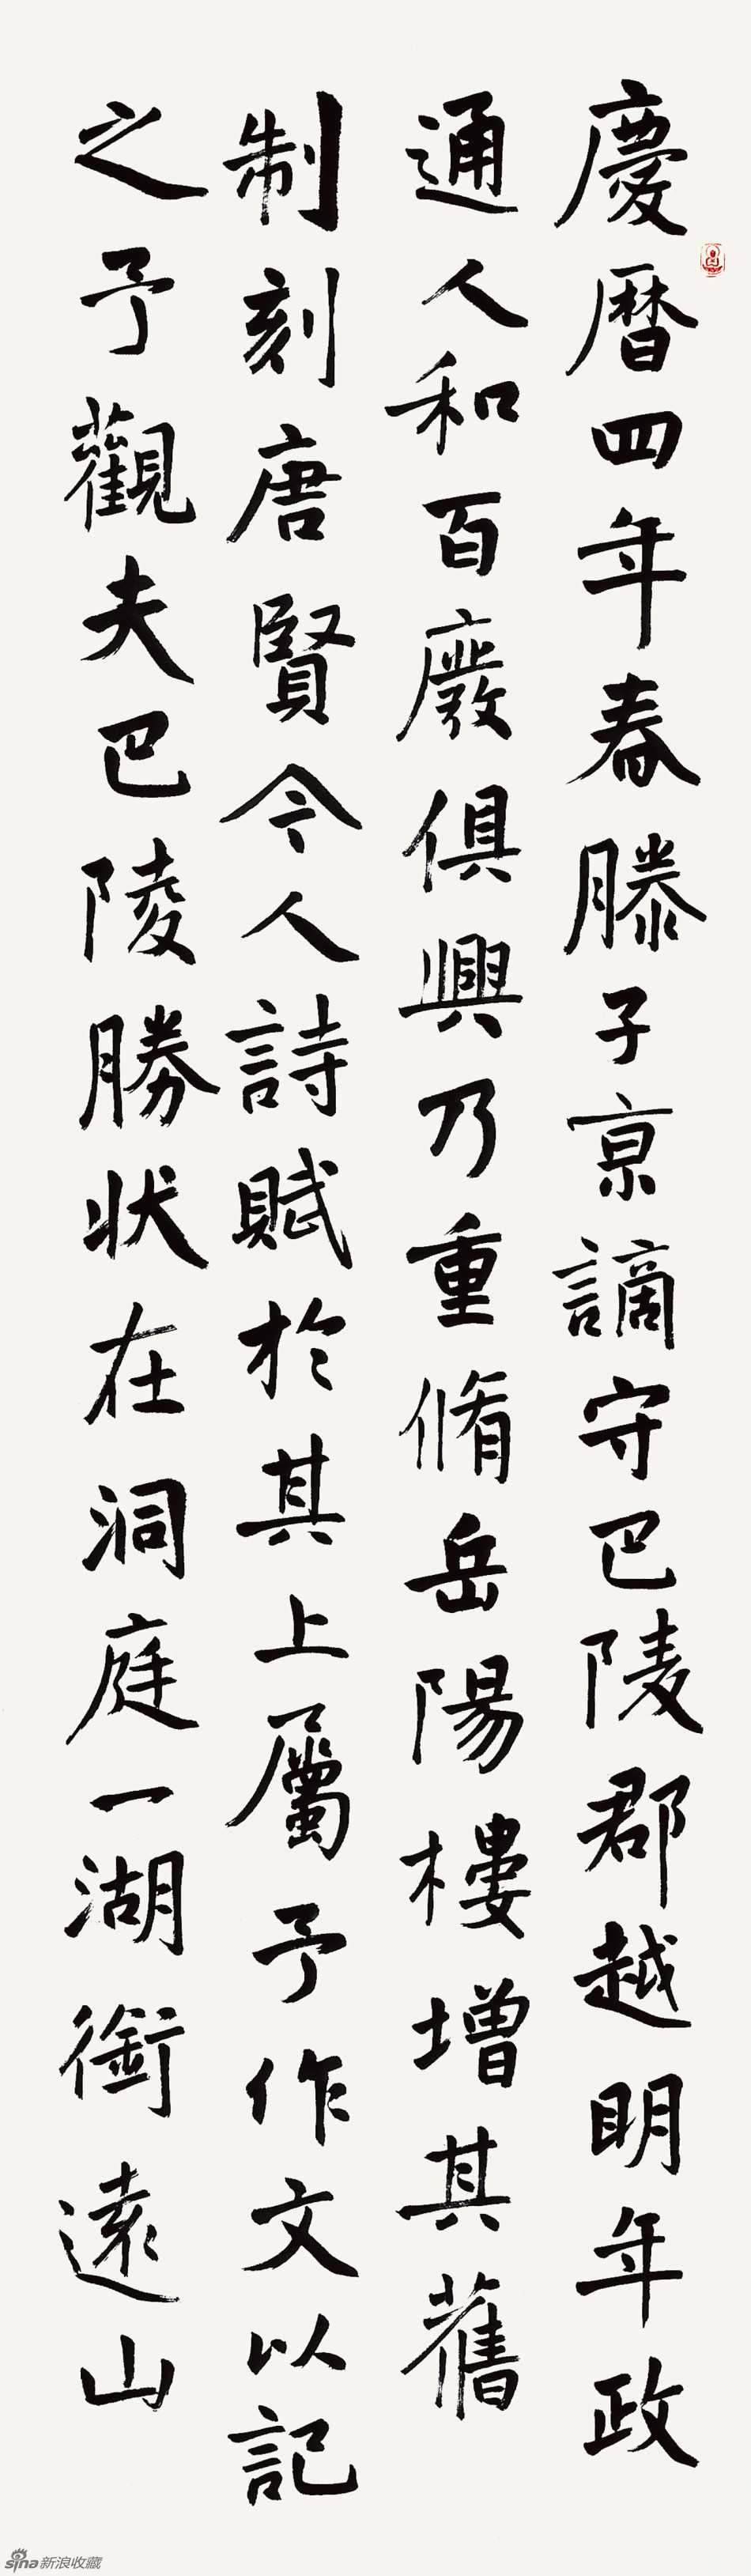 慶曆四年春滕子京謫守巴陵郡越明年政
通人和百廢俱興乃重脩岳陽樓增其舊
制刻唐賢今人詩賦於其上屬予作文以記
之予觀夫巴陵勝狀在洞庭一湖銜遠山
sina新浪收藏